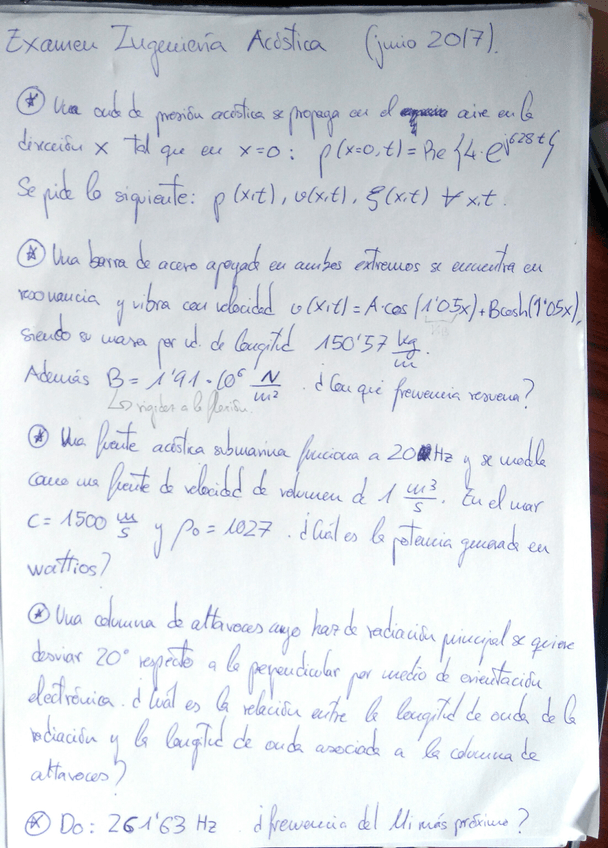 Examen Ingeniería Acústica (junio 2017).
* Una onda de presión acústica se propaga en el aire en la
dirección x tal que en x=0: p(x=0,t)=Re{4·e^j628t}
Se pide lo siguiente: p(x,t), v(x,t), ξ(x,t) ∀ x,t.
* Una barra de acero apoyada en ambos extremos se encuentra en
resonancia y vibra con velocidad v(x,t)=A·cos(1'05x)+Bcosh(1'05x),
siendo su masa por ud. de longitud 150'57 kg/m.
Además B=1'91·10⁶ N/m². ¿Con qué frecuencia resuena?
↳ rigidez a la flexión.
* Una fuente acústica submarina funciona a 20 Hz y se modela
como una fuente de velocidad de volumen d 1 m³/s. En el mar
c=1500 m/s y ρ₀=1027. ¿Cuál es la potencia generada en
wattios?
* Una columna de altavoces cuyo haz de radiación principal se quiere
desviar 20° respecto a la perpendicular por medio de orientación
electrónica. ¿Cuál es la relación entre la longitud de onda de la
radiación y la longitud de onda asociada a la columna de
altavoces?
* Do: 261'63 Hz ¿frecuencia del Mi más próximo?